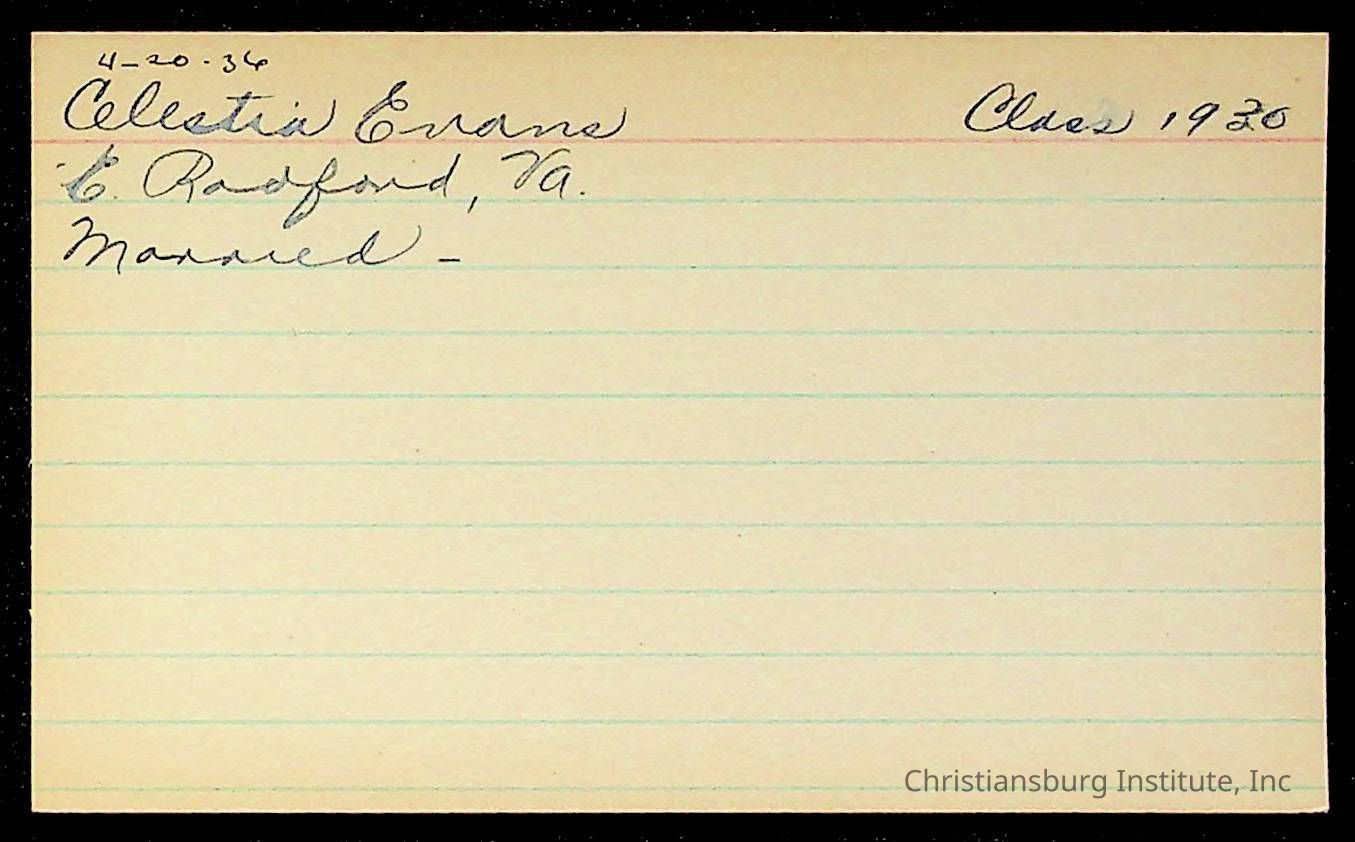 4-20-36
Celestia Evans Class 1930
E. Radford, Va.
Married -
Christiansburg Institute, Inc